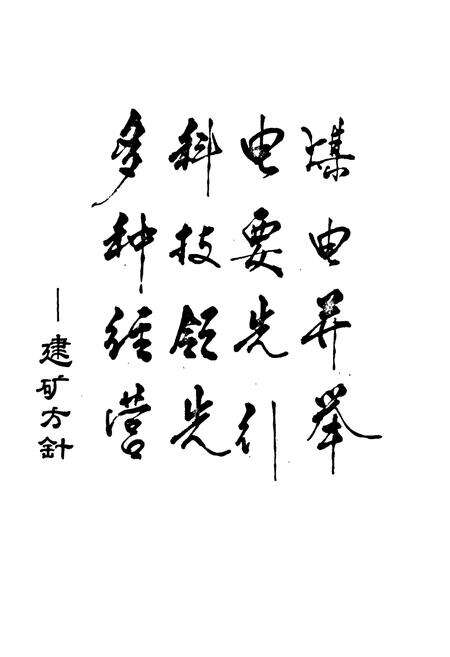 煤电并举
电要先行
科技领先
多种经营
—建矿方針